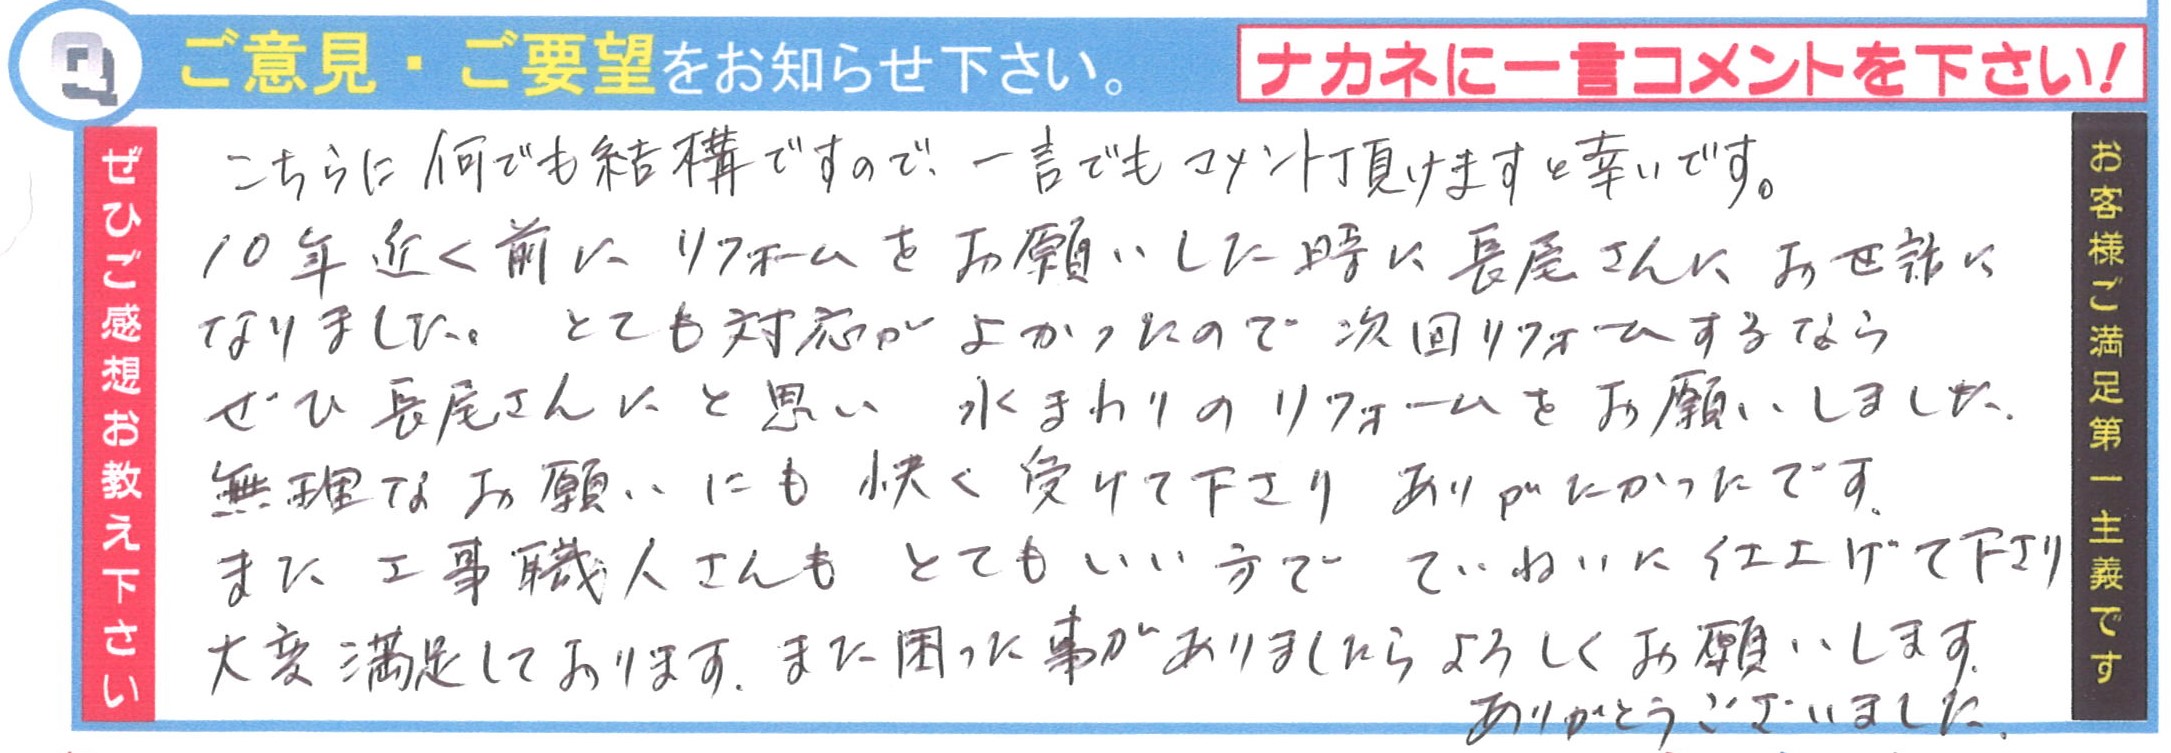 Q ご意見・ご要望をお知らせ下さい。 ナカネに一言コメントを下さい!
ぜひご感想お教え下さい
こちらに何でも結構ですので、一言でもコメント頂けますと幸いです。
10年近く前に リフォームをお願いした時に長尾さんに お世話に
なりました。 とても対応が よかったので 次回リフォームするなら
ぜひ 長尾さんに と思い 水まわりのリフォームをお願いしました.
無理なお願いにも 快く受けて下さり ありがたかったです.
また 工事職人さんも とてもいい方で ていねいに仕上げて下さり
大変満足しております. また困った事がありましたらよろしくお願いします.
ありがとうございました.
お客様ご満足第一主義です